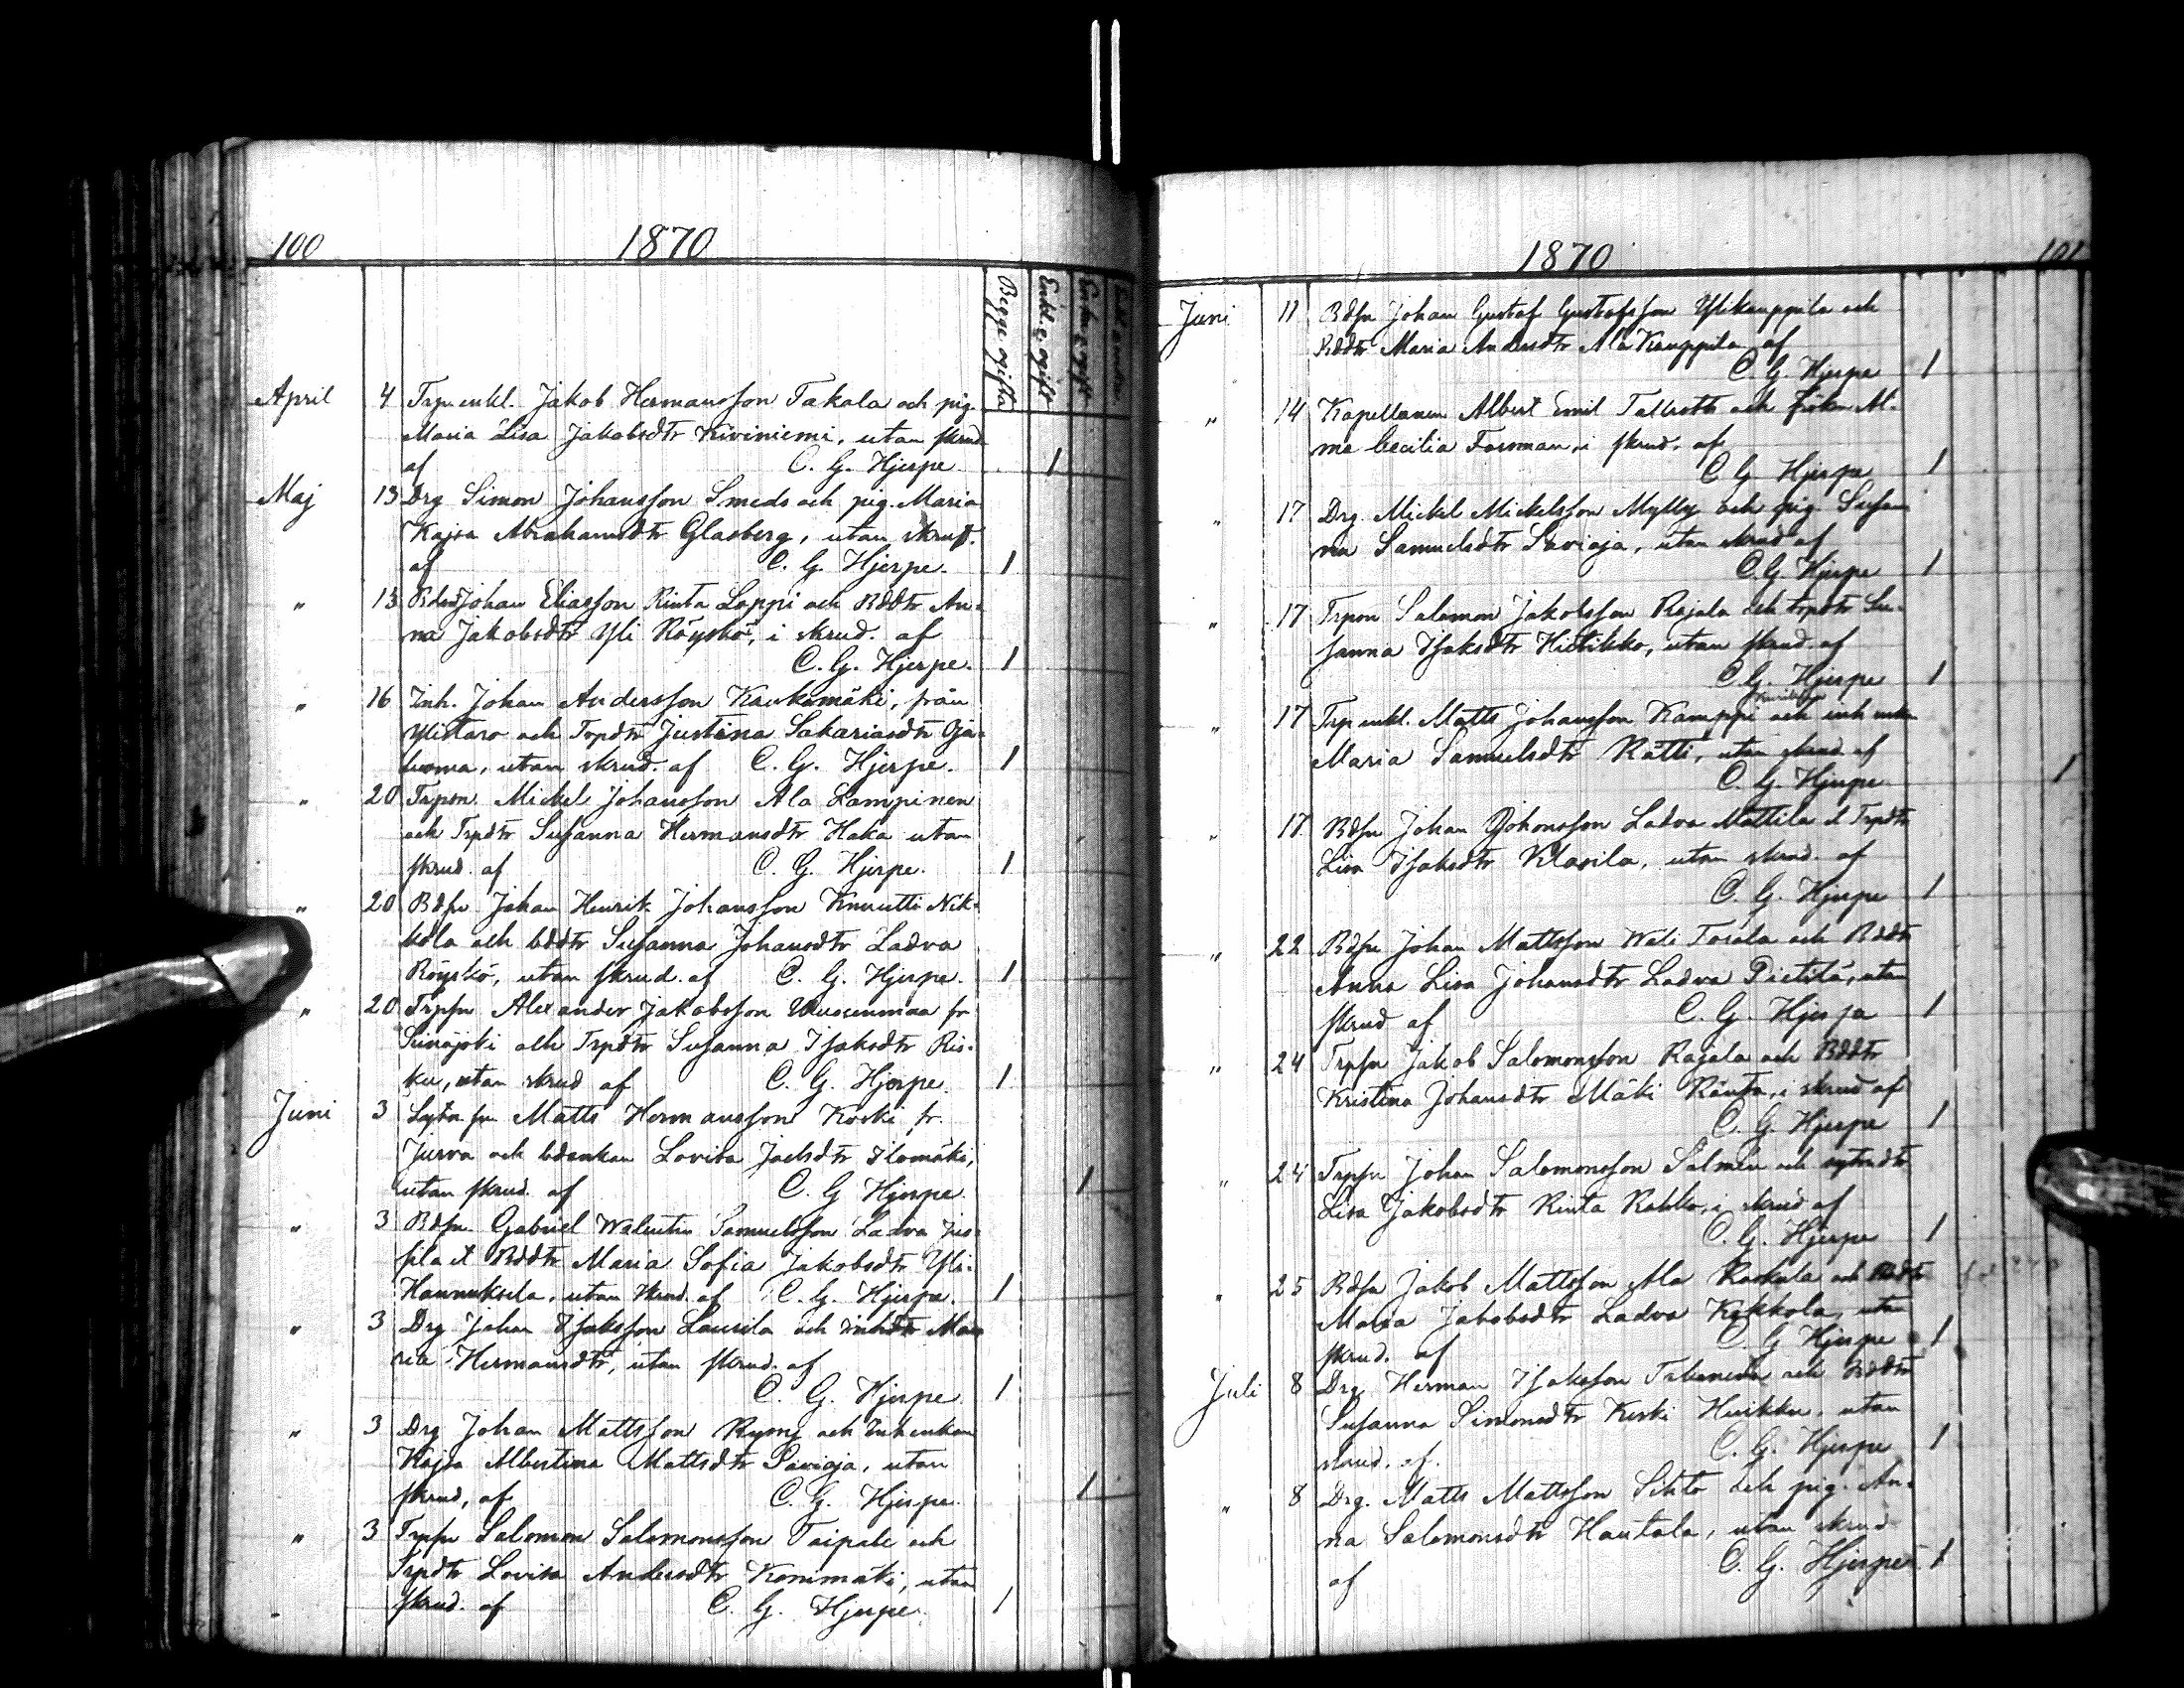 100
1870
Begge ogifta
Enkl. e. ogift
April 4 Trp. enkl. Jakob Hermansson Takala och pig.
Maria Lisa Jakobsdtr Kiviniemi, utan skrud
af C. G. Hjerpe. 1
Maj 13 Drg Simon Johansson Smeds och pig. Maria
Kajsa Abrahamsdtr Glasberg, utan skrud.
af C. G. Hjerpe. 1
" 13 Bdsn Johan Eliasson Rinta Loppi och Bddtr An-
na Jakobsdtr Yli Röyskö, i skrud. af
C. G. Hjerpe. 1
" 16 Inh. Johan Andersson Kaukomäki, från
Ylistaro och Trpdtr Justina Sakariasdtr Oja-
luoma, utan skrud. af C. G. Hjerpe. 1
" 20 Trpsn Mickel Johansson Ala Lampinen
och Trpdtr Susanna Hermansdtr Haka utan
skrud. af C. G. Hjerpe. 1
" 20 Bdsn Johan Henrik Johansson Knuutti Nik-
kola och bddtr Susanna Johansdtr Ladva
Röyskö, utan skrud. af C. G. Hjerpe. 1
" 20 Trpsn Alexander Jakobsson Uusimmaa fr
Seinäjoki och Trpdtr Susanna Isaksdtr Ris-
ku, utan skrud af C. G. Hjerpe. 1
Juni 3 Matts Hermansson Koski fr.
Jurva och bdenkan Lovisa Ilomäki,
utan skrud. af C. G. Hjerpe. 1
" 3 Bdsn Gabriel Walentin Samuelsson Ladva Jus-
sila et Bddtr Maria Sofia Jakobsdtr Yli-
Hannuksela, utan skrud. af C. G. Hjerpe. 1
" 3 Drg Johan Isaksson Laurila och inhdtr Ma-
ria Hermansdtr, utan skrud. af
C. G. Hjerpe 1
" 3 Drg Johan Mattsson Ryöni och Inhenkan
Kajsa Albertina Mattsdtr Saviaja, utan
skrud, af C. G. Hjerpe. 1
" 3 Trpsn Salomon Salomonsson Taipale och
Trpdtr Lovisa Andersdtr Konimäki, utan
skrud. af C. G. Hjerpe. 1
1870
101
Juni 11 Bdsn Johan Gustaf Gustafsson Ylikauppila och
Bddtr Maria Andersdtr Ala Kauppila af
C. G. Hjerpe 1
" 14 Kapellanen Albert Emil Tallroth och fröken Al-
ma Cecilia Forsman, i skrud. af
C. G. Hjerpe 1
" 17 Drg. Mickel Mickelsson Mylly och pig. Susan
na Samuelsdtr Saviaja, utan skrud af
C. G. Hjerpe 1
" 17 Trpson Salomon Jakobsson Rajala och trpdtr Su-
sanna Isaksdtr Hietikko, utan skrud. af
C. G. Hjerpe 1
" 17 Trp enkl. Matts Johansson Kamppi och inh enk
Maria Samuelsdtr Rätti, utan skrud. af
C. G. Hjerpe 1
" 17 Bdsn Johan Johansson Ladva Mattila et Trpdtr
Lisa Isaksdtr Klasila, utan skrud. af
C. G. Hjerpe 1
" 22 Bdsn Johan Mattsson Wäli Torala och Bddtr
Anna Lisa Johansdtr Ladva Pietilä, utan
skrud af C. G. Hjerpe 1
" 24 Trpsn Jakob Salomonsson Rajala och Bddtr
Kristina Johansdtr Mäki Ränta, i skrud af
C. G. Hjerpe 1
" 24 Trpsn Johan Salomonsson Salmén och
Lisa Jakobsdtr Rinta Rahko, i skrud af
C. G. Hjerpe 1
" 25 Bdsn Jakob Mattsson Ala Raskala och Bddtr
Maria Jakobsdtr Ladva Kokkola, utan
skrud. af C. G. Hjerpe 1
Juli 8 Drg. Herman Isaksson och Bddtr
Susanna Simonsdtr Keski Huikku, utan
skrud. af. C. G. Hjerpe 1
" 8 Drg. Matts Mattsson Sihto och pig. An-
na Salomonsdtr Hautala, utan skrud
af C. G. Hjerpe. 1